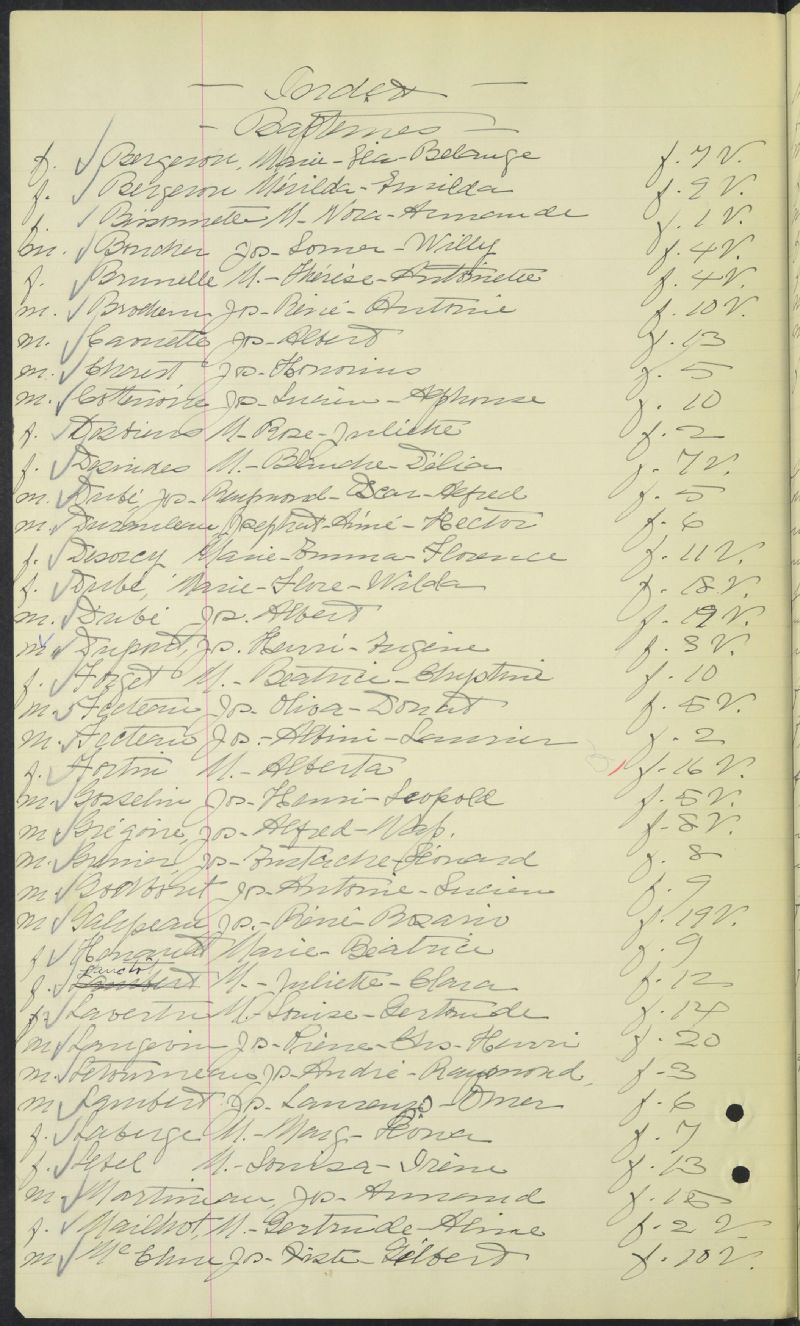 — Index —
— Baptêmes —
f. Bergeron, Marie- -Belange f. 7 V.
f. Bergeron Mérilda-Emilda f. 9 V.
f. Bissonnette M. Nora-Armande f. 1 V.
m. Boucher Jos- -Willy f. 4 V.
f. Brunelle M.-Thérèse-Antoinette f. 4 V.
m. Brochu Jos-Réné-Antonio f. 10 V.
m. Caouette Jos-Albert f. 13
m. Cherest Jos-Honorius f. 5
m. Cottenoire Jos-Lucien-Alphonse f. 10
f. Desbiens M-Rose-Juliette f. 2
f. M.-Blanche-Délia f. 7 V.
m. Dubé Jos-Raymond-Oscar-Alfred f. 5
m. Josephat-Aimé-Hector f. 6
f. Desorcy Marie-Emma-Florence f. 11 V.
f. Dubé, Marie-Flore-Wilda f. 18 V.
m. Dubé Jos. Albert f. 19 V.
m. Dupont, Jos. Henri-Eugène f. 3 V.
f. Forget M.-Béatrice- f. 10
m. Fecteau, Jos-Oliva-Donat f. 5 V.
m. Fecteau Jos.-Albini-Laurier f. 2
f. Fortin M.-Alberta f. 16 V.
m. Gosselin Jos-Henri-Leopold f. 5 V.
m. Grégoire, Jos-Alfred- f. 8 V.
m. Grenier, Jos-Eustache-Léonard f. 8
m. Godbout Jos-Antonio-Lucien f. 9
m. Galipeau Jos.-Réné-Rosario f. 19 V.
f. Marie-Béatrice f. 9
f. Lambert M.-Juliette-Clara f. 12
f. Lavertu M-Louise-Gertrude f. 14
m. Langevin Jos-Pierre-Chs-Henri f. 20
m. Letourneau Jos-André-Raymond, f-3
m. Lambert Jos-Laurenzo-Omer f. 6
f. Laberge M.-Marg- f. 7
f. M.-Louisa-Irène f. 13
m. Martineau, Jos-Armand f. 15
f. Mailhot, M-Gertrude-Aline f. 2 V.
m. McClure Jos- -Gilbert f. 10 V.